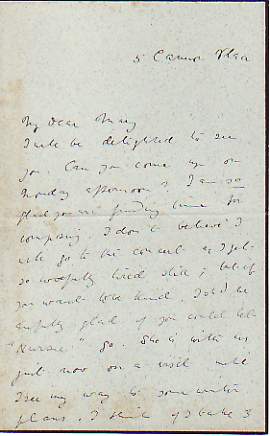 5 Cannon Place
My Dear Mary
I will be delighted to see
you. Can you come up on
Monday afternoon? I am so
glad you are finding time for
composing. I don't believe I
will go to the concert as I get
so woefully tired still; but if
you want to be kind, I shd be
awfully glad if you could let
"Nurse" go. She is with us
just now on a visit until
I see my way to some winter
plans. I think if I take 3